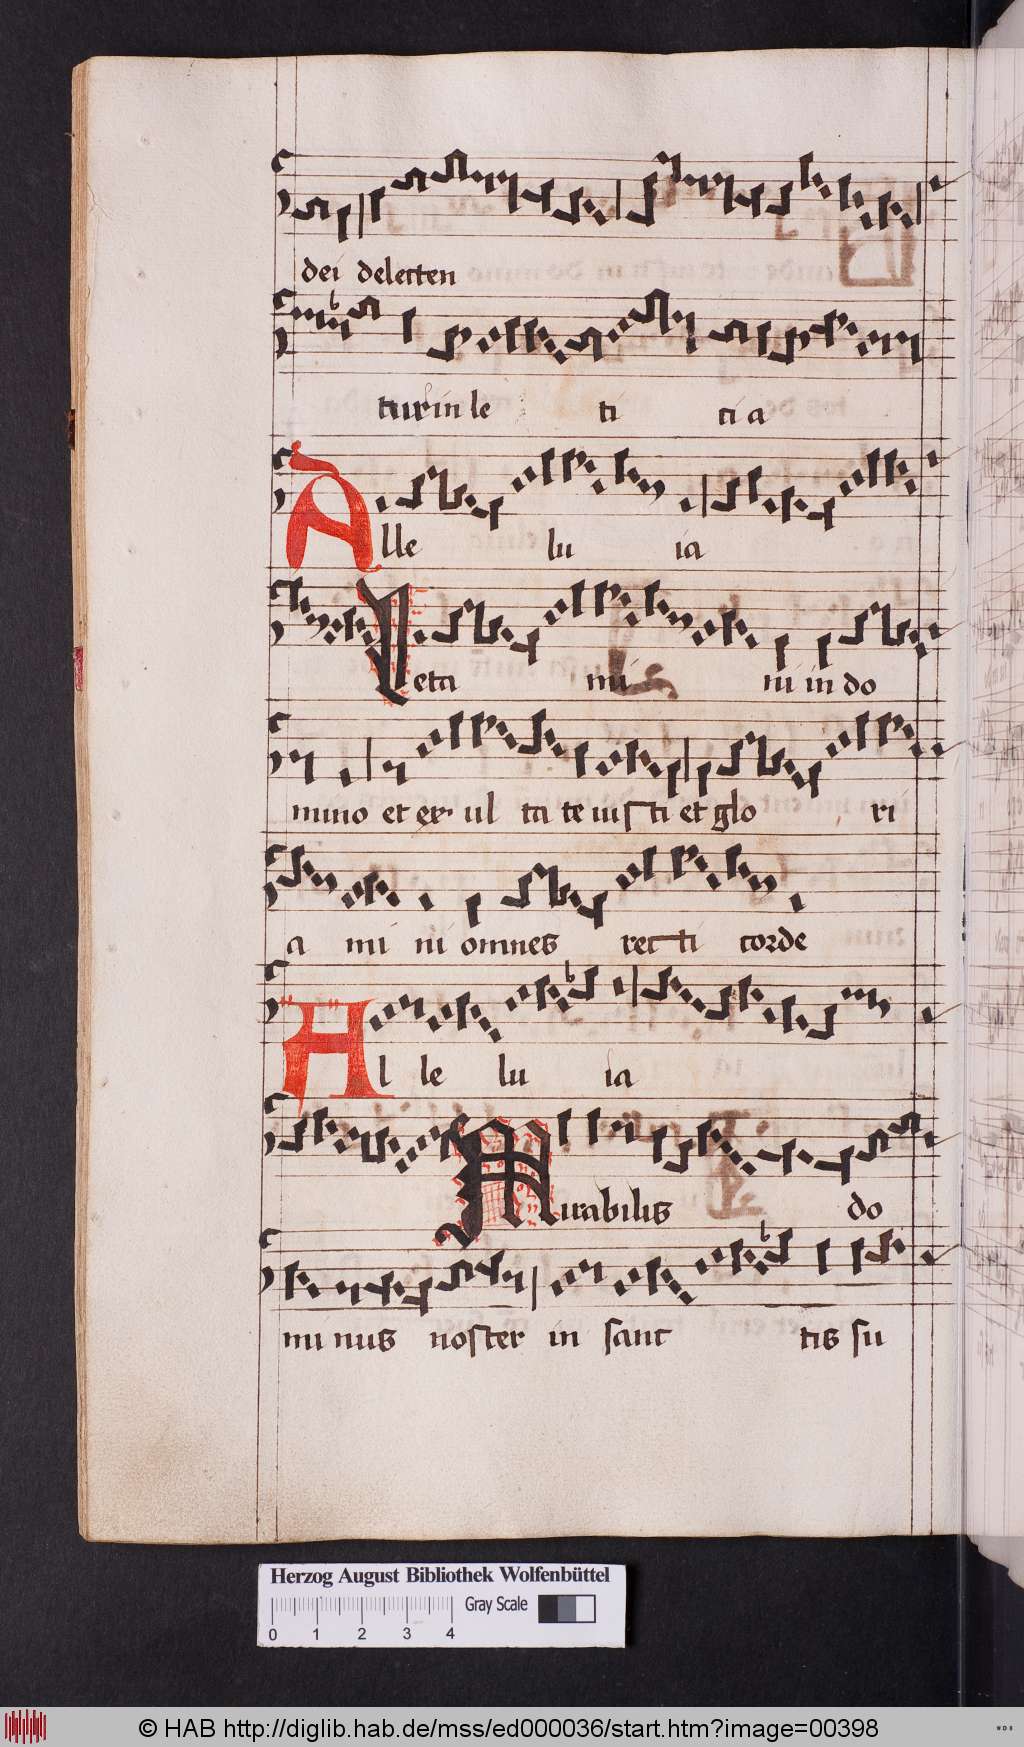 dei delecten
tur in le ti ti a
Alle lu ia
Leta mi ni in do
mino et ex ul ta te iusti et glo ri
a mi ni omnes rec ti corde
Al le lu ia
Mirabilis do
mi nus noster in sanc tis su
Herzog August Bibliothek Wolfenbüttel
Gray Scale
0 1 2 3 4
© HAB http://diglib.hab.de/mss/ed000036/start.htm?image=00398